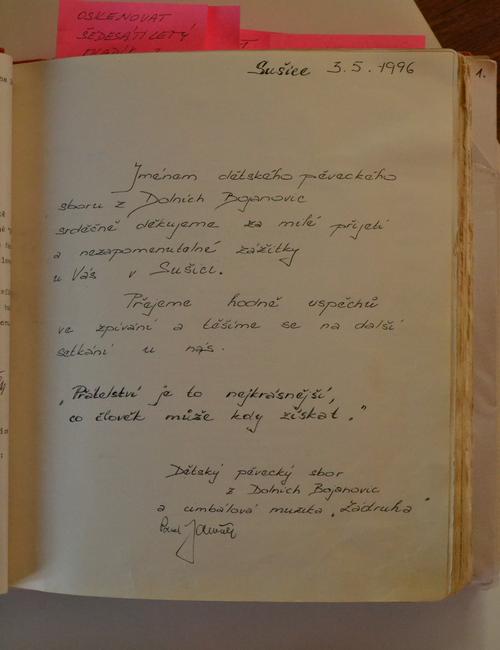 OSKENOVAT
ŠEDESÁTILETÝ
Sušice 3.5.1996
1.
Jménem dětského pěveckého
sboru z Dolních Bojanovic
srdečně děkujeme za milé přijetí
a nezapomenutelné zážitky
u Vás v Sušici.
Přejeme hodně uspěchů
ve zpívání a těšíme se na další
setkání u nás.
„Přátelství je to nejkrásnější,
co člověk může kdy získat."
Dětský pěvecký sbor
z Dolních Bojanovic
a cimbálová muzika „Zádruha"
Pavel